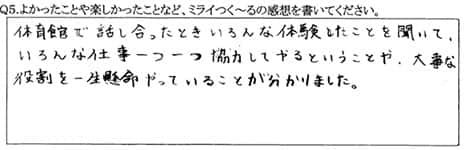 Q5.よかったことや楽しかったことなど、ミライつく~るの感想を書いてください。
体育館で話し合ったときいろんな体験したことを聞いて、
いろんな仕事一つ一つ協力してやるということや、大事な
役割を一生懸命やっていることが分かりました。